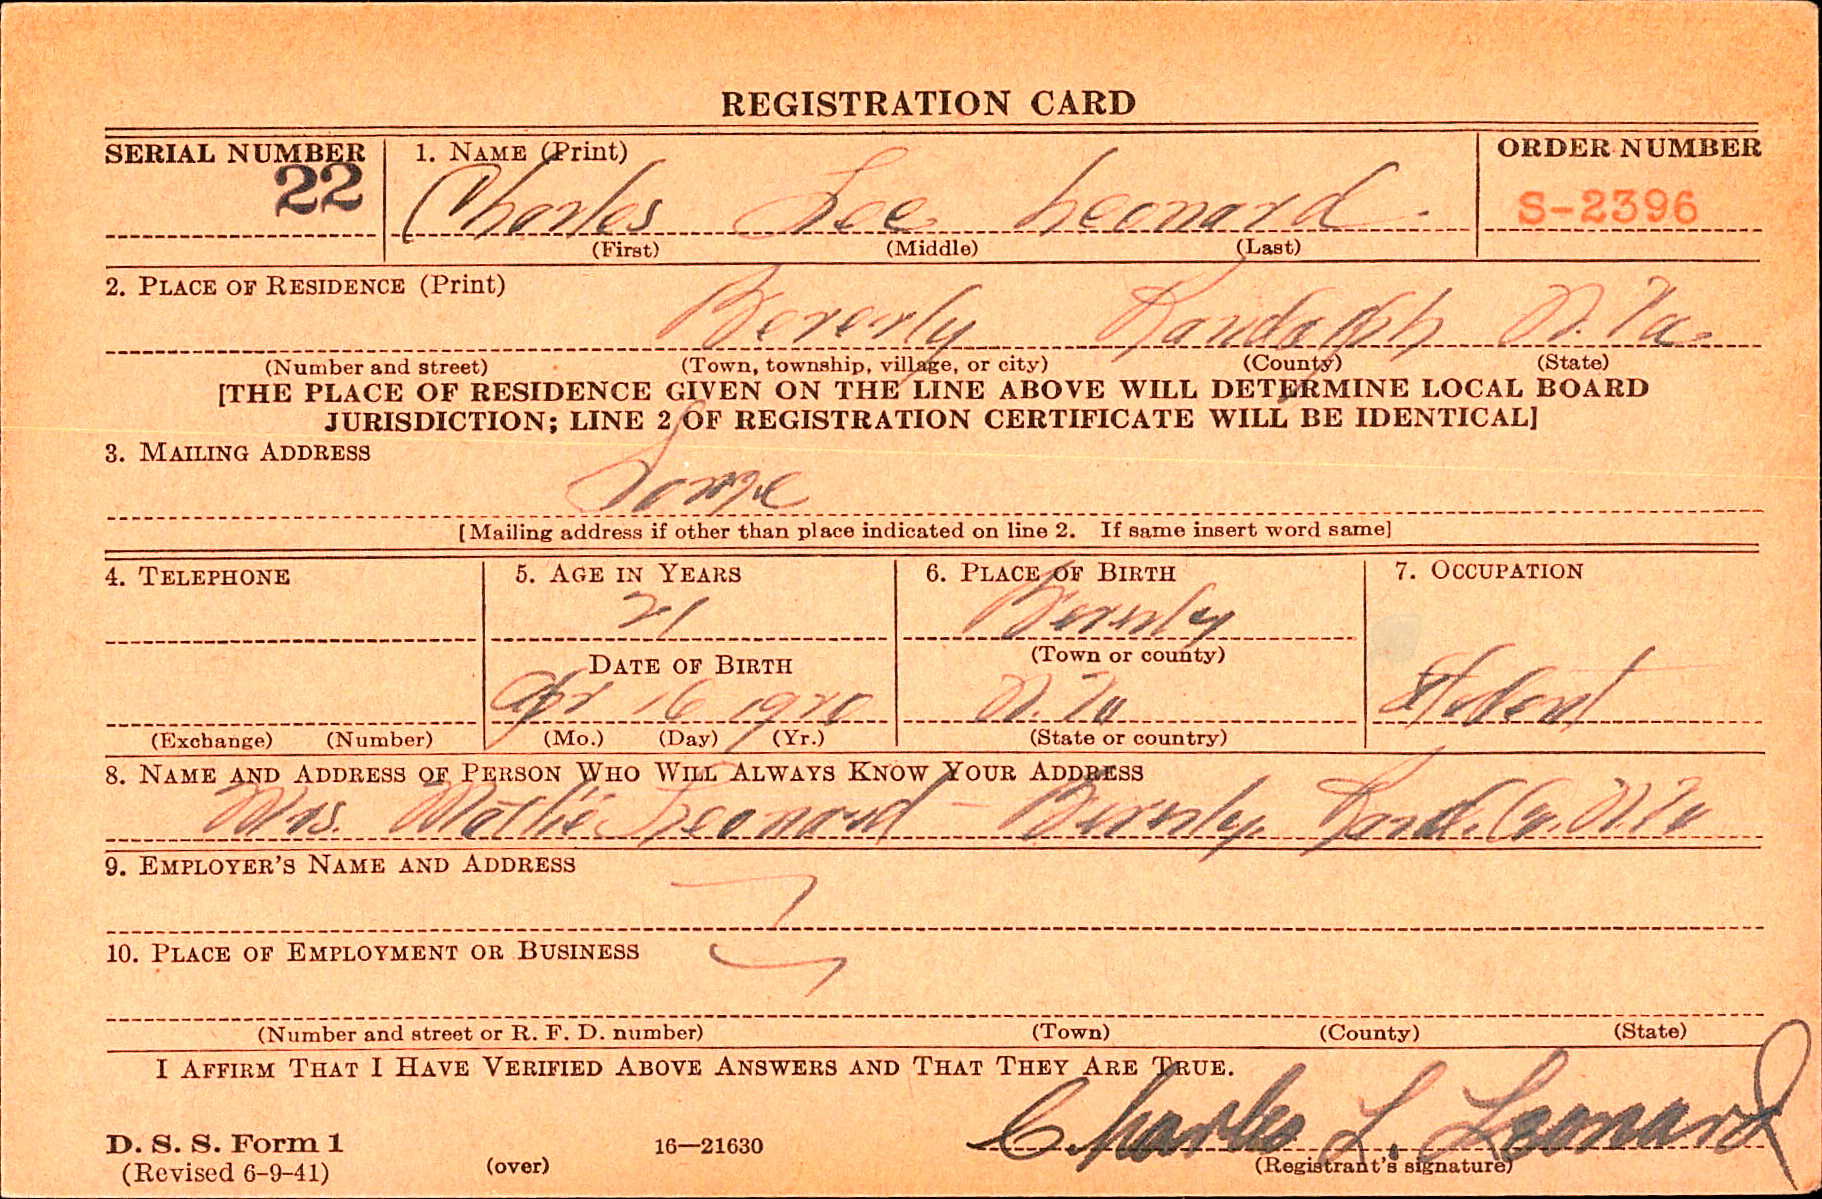 REGISTRATION CARD
SERIAL NUMBER 1. NAME (Print) ORDER NUMBER
22 Charles Lee Leonard. S-2396
(First) (Middle) (Last)
2. PLACE OF RESIDENCE (Print)
Beverly Randolph W.Va.
(Number and street) (Town, township, village, or city) (County) (State)
[THE PLACE OF RESIDENCE GIVEN ON THE LINE ABOVE WILL DETERMINE LOCAL BOARD
JURISDICTION; LINE 2 OF REGISTRATION CERTIFICATE WILL BE IDENTICAL]
3. MAILING ADDRESS
Same
[Mailing address if other than place indicated on line 2. If same insert word same]
4. TELEPHONE 5. AGE IN YEARS 6. PLACE OF BIRTH 7. OCCUPATION
21 Beverly
DATE OF BIRTH (Town or county)
Apr 16 1920 W.Va
(Exchange) (Number) (Mo.) (Day) (Yr.) (State or country)
8. NAME AND ADDRESS OF PERSON WHO WILL ALWAYS KNOW YOUR ADDRESS
Mrs. Mollie Leonard - Beverly, Rand. Co. W.Va
9. EMPLOYER'S NAME AND ADDRESS
10. PLACE OF EMPLOYMENT OR BUSINESS
(Number and street or R. F. D. number) (Town) (County) (State)
I AFFIRM THAT I HAVE VERIFIED ABOVE ANSWERS AND THAT THEY ARE TRUE.
Charles L. Leonard
D. S. S. Form 1 16—21630
(Revised 6-9-41) (over) (Registrant's signature)